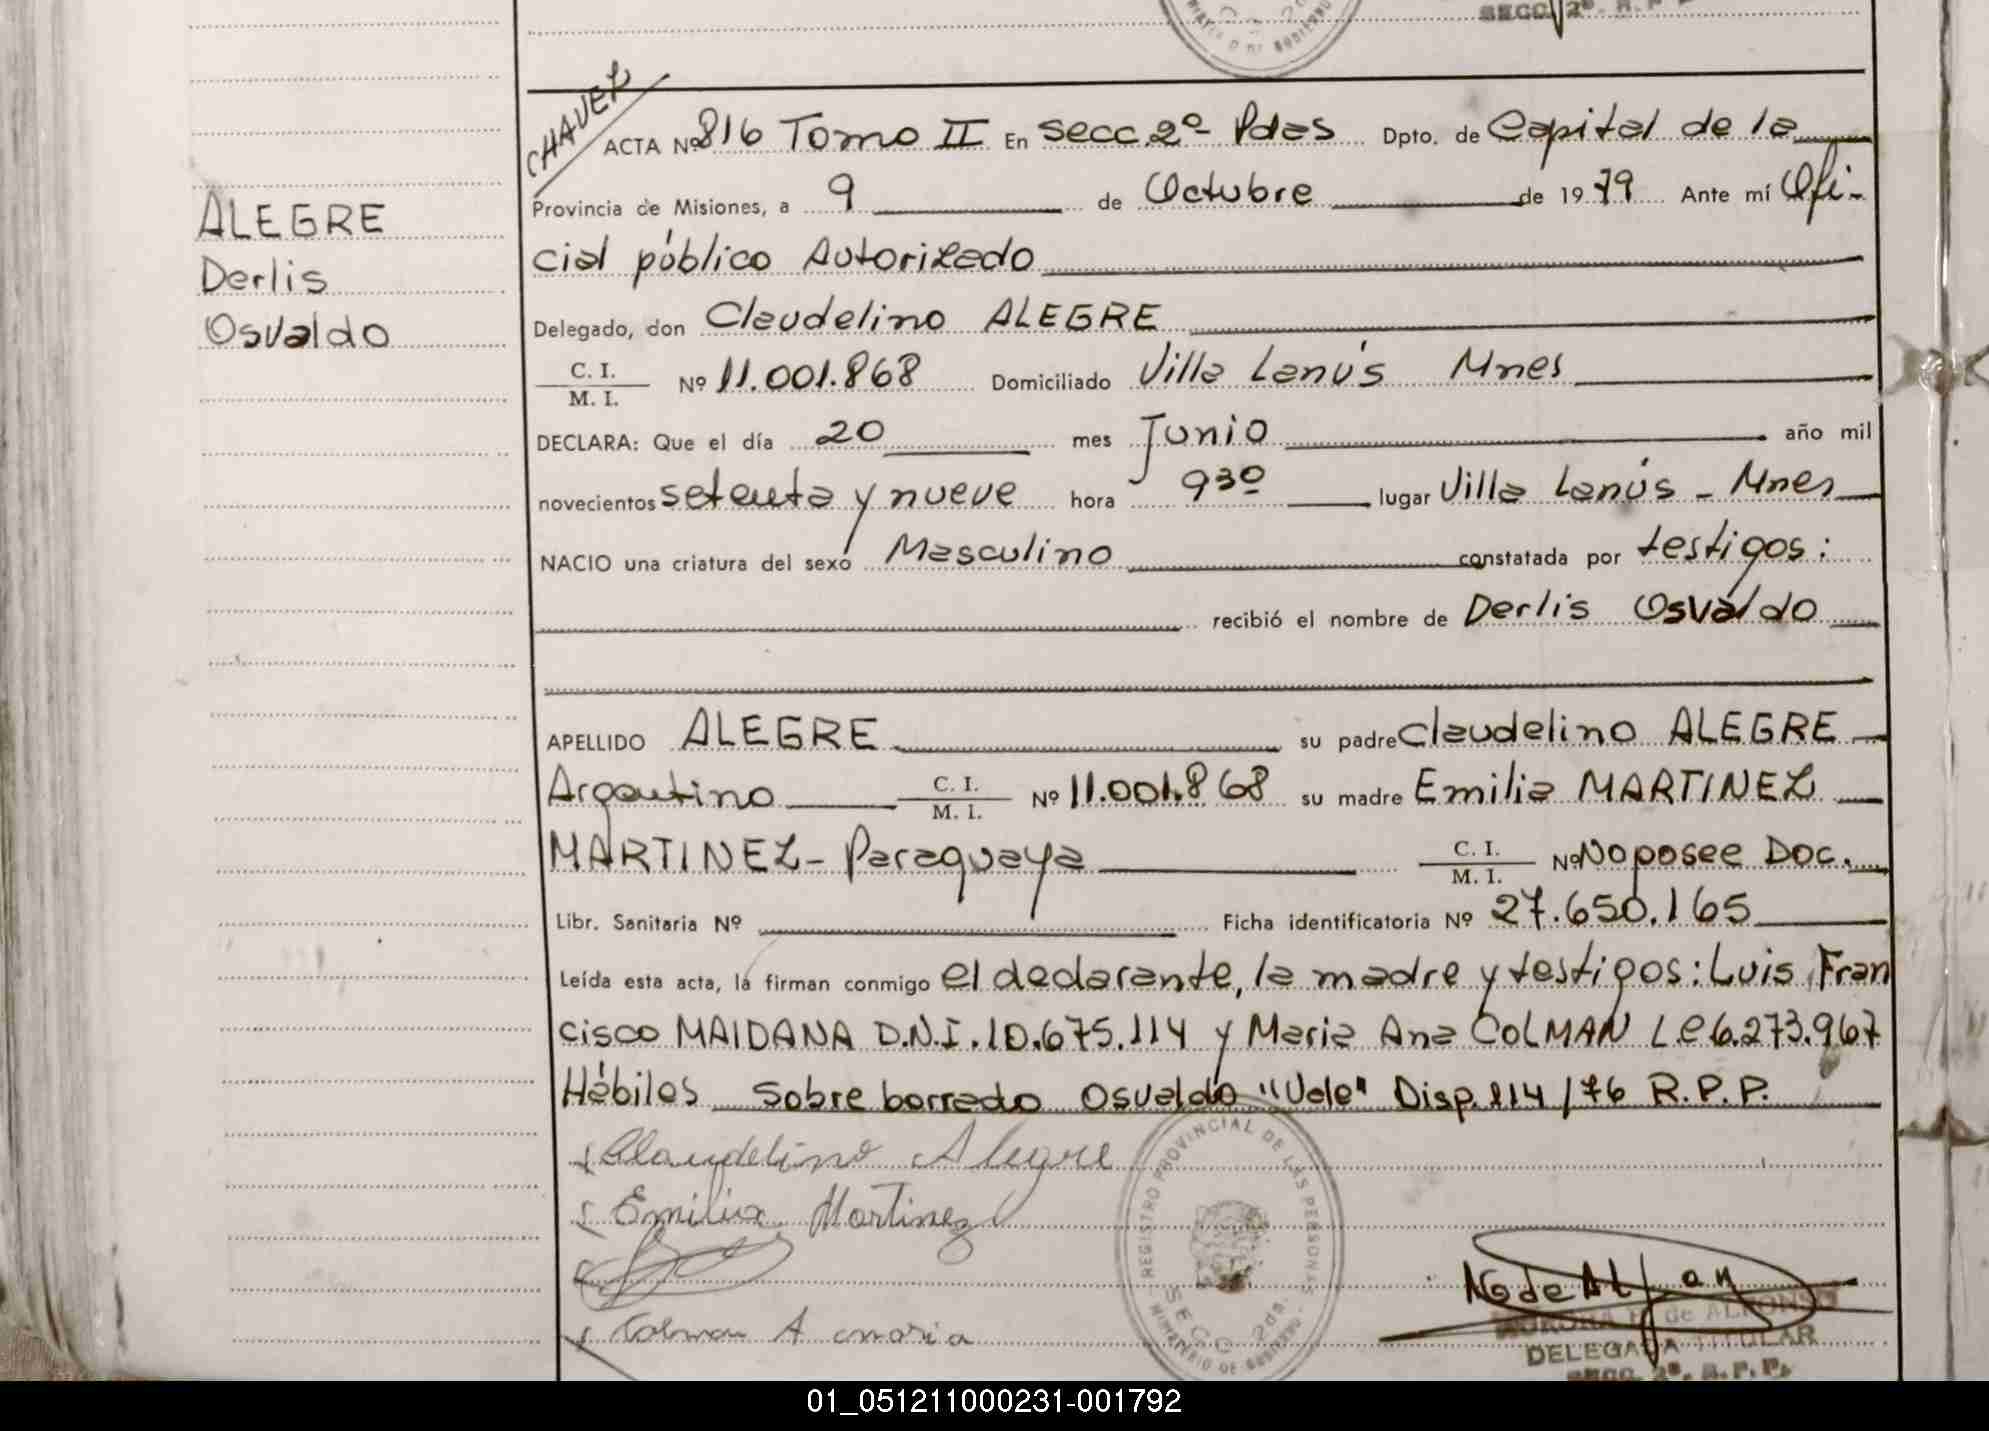 SECC. 2º. R. P.
CHAVEZ
ACTA Nº 816 Tomo II En Secc. 2º Pdas Dpto. de Capital de la
Provincia de Misiones, a 9 de Octubre de 1979 Ante mí Ofi-
cial público Autorizado
ALEGRE
Derlis
Osvaldo
Delegado, don Claudelino ALEGRE
C. I.
M. I.
Nº 11.001.868 Domiciliado Villa Lanús Mnes
DECLARA: Que el día 20 mes Junio año mil
novecientos setenta y nueve hora 9 30 lugar Villa Lanús - Mnes
NACIO una criatura del sexo Masculino constatada por testigos:
recibió el nombre de Derlis Osvaldo
APELLIDO ALEGRE su padre Claudelino ALEGRE
Argentino C. I. M. I. Nº 11.001.868 su madre Emilia MARTINEZ
MARTINEZ - Paraguaya C. I. M. I. Nº No posee Doc.
Libr. Sanitaria Nº Ficha identificatoria Nº 27.650.165
Leída esta acta, la firman conmigo el declarante, la madre y testigos: Luis Fran
cisco MAIDANA D.N.I. 10.675.114 y Maria Ana COLMAN L.C 6.273.967
Hábiles Sobre borrado Osvaldo "Vale" Disp. 114/76 R.P.P.
Claudelino Alegre
Emilia Martinez
Colman A maria
REGISTRO PROVINCIAL DE LAS PERSONAS
SECC 2da.
MINISTERIO DE GOBIERNO
N de Alfon
AURORA N. de ALFONSO
DELEGADA TITULAR
SECC. 2º. R. P. P.
01_051211000231-001792